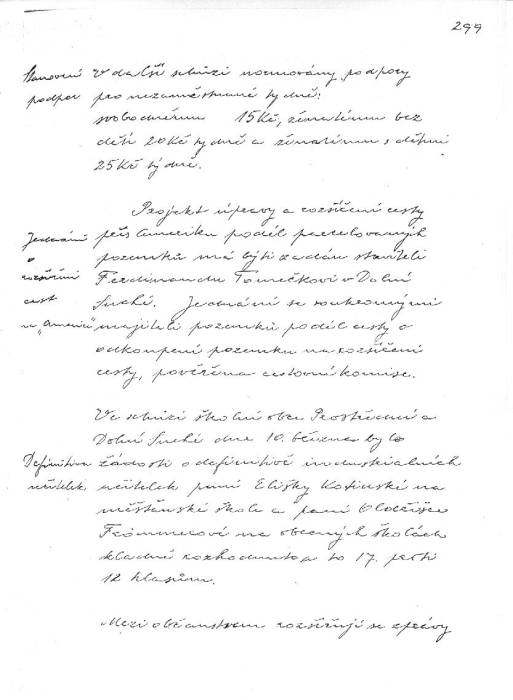 299
Stanovení
podpor
V další schůzi normovány podpory
pro nezaměstnané týdně:
svobodnému 15Kč, ženatému bez
dětí 20Kč týdně a ženatému s dětmi
25Kč týdně.
Jednání
o
rozšíření
cest
na „Americe"
Projekt úpravy a rozšíření cesty
přes Ameriku podél parcelovaných
pozemků má býti zadán staviteli
Ferdinandu Tomečkovi v Dolní
Suché. Jednání se soukromými
majiteli pozemků podél cesty o
odkoupení pozemku na rozšíření
cesty, pověřena cestovní komise.
Definitiva
učitelek
Ve schůzi školní obce Prostřední a
Dolní Suché dne 10. března bylo
žádosti o definitivě industriálních
učitelek paní Elišky Kotinské na
měšťanské škole a paní
Frömmerové na obecných školách
kladně rozhodnuto a to 17. proti
12 hlasům.
Mezi občanstvem rozšiřují se zprávy